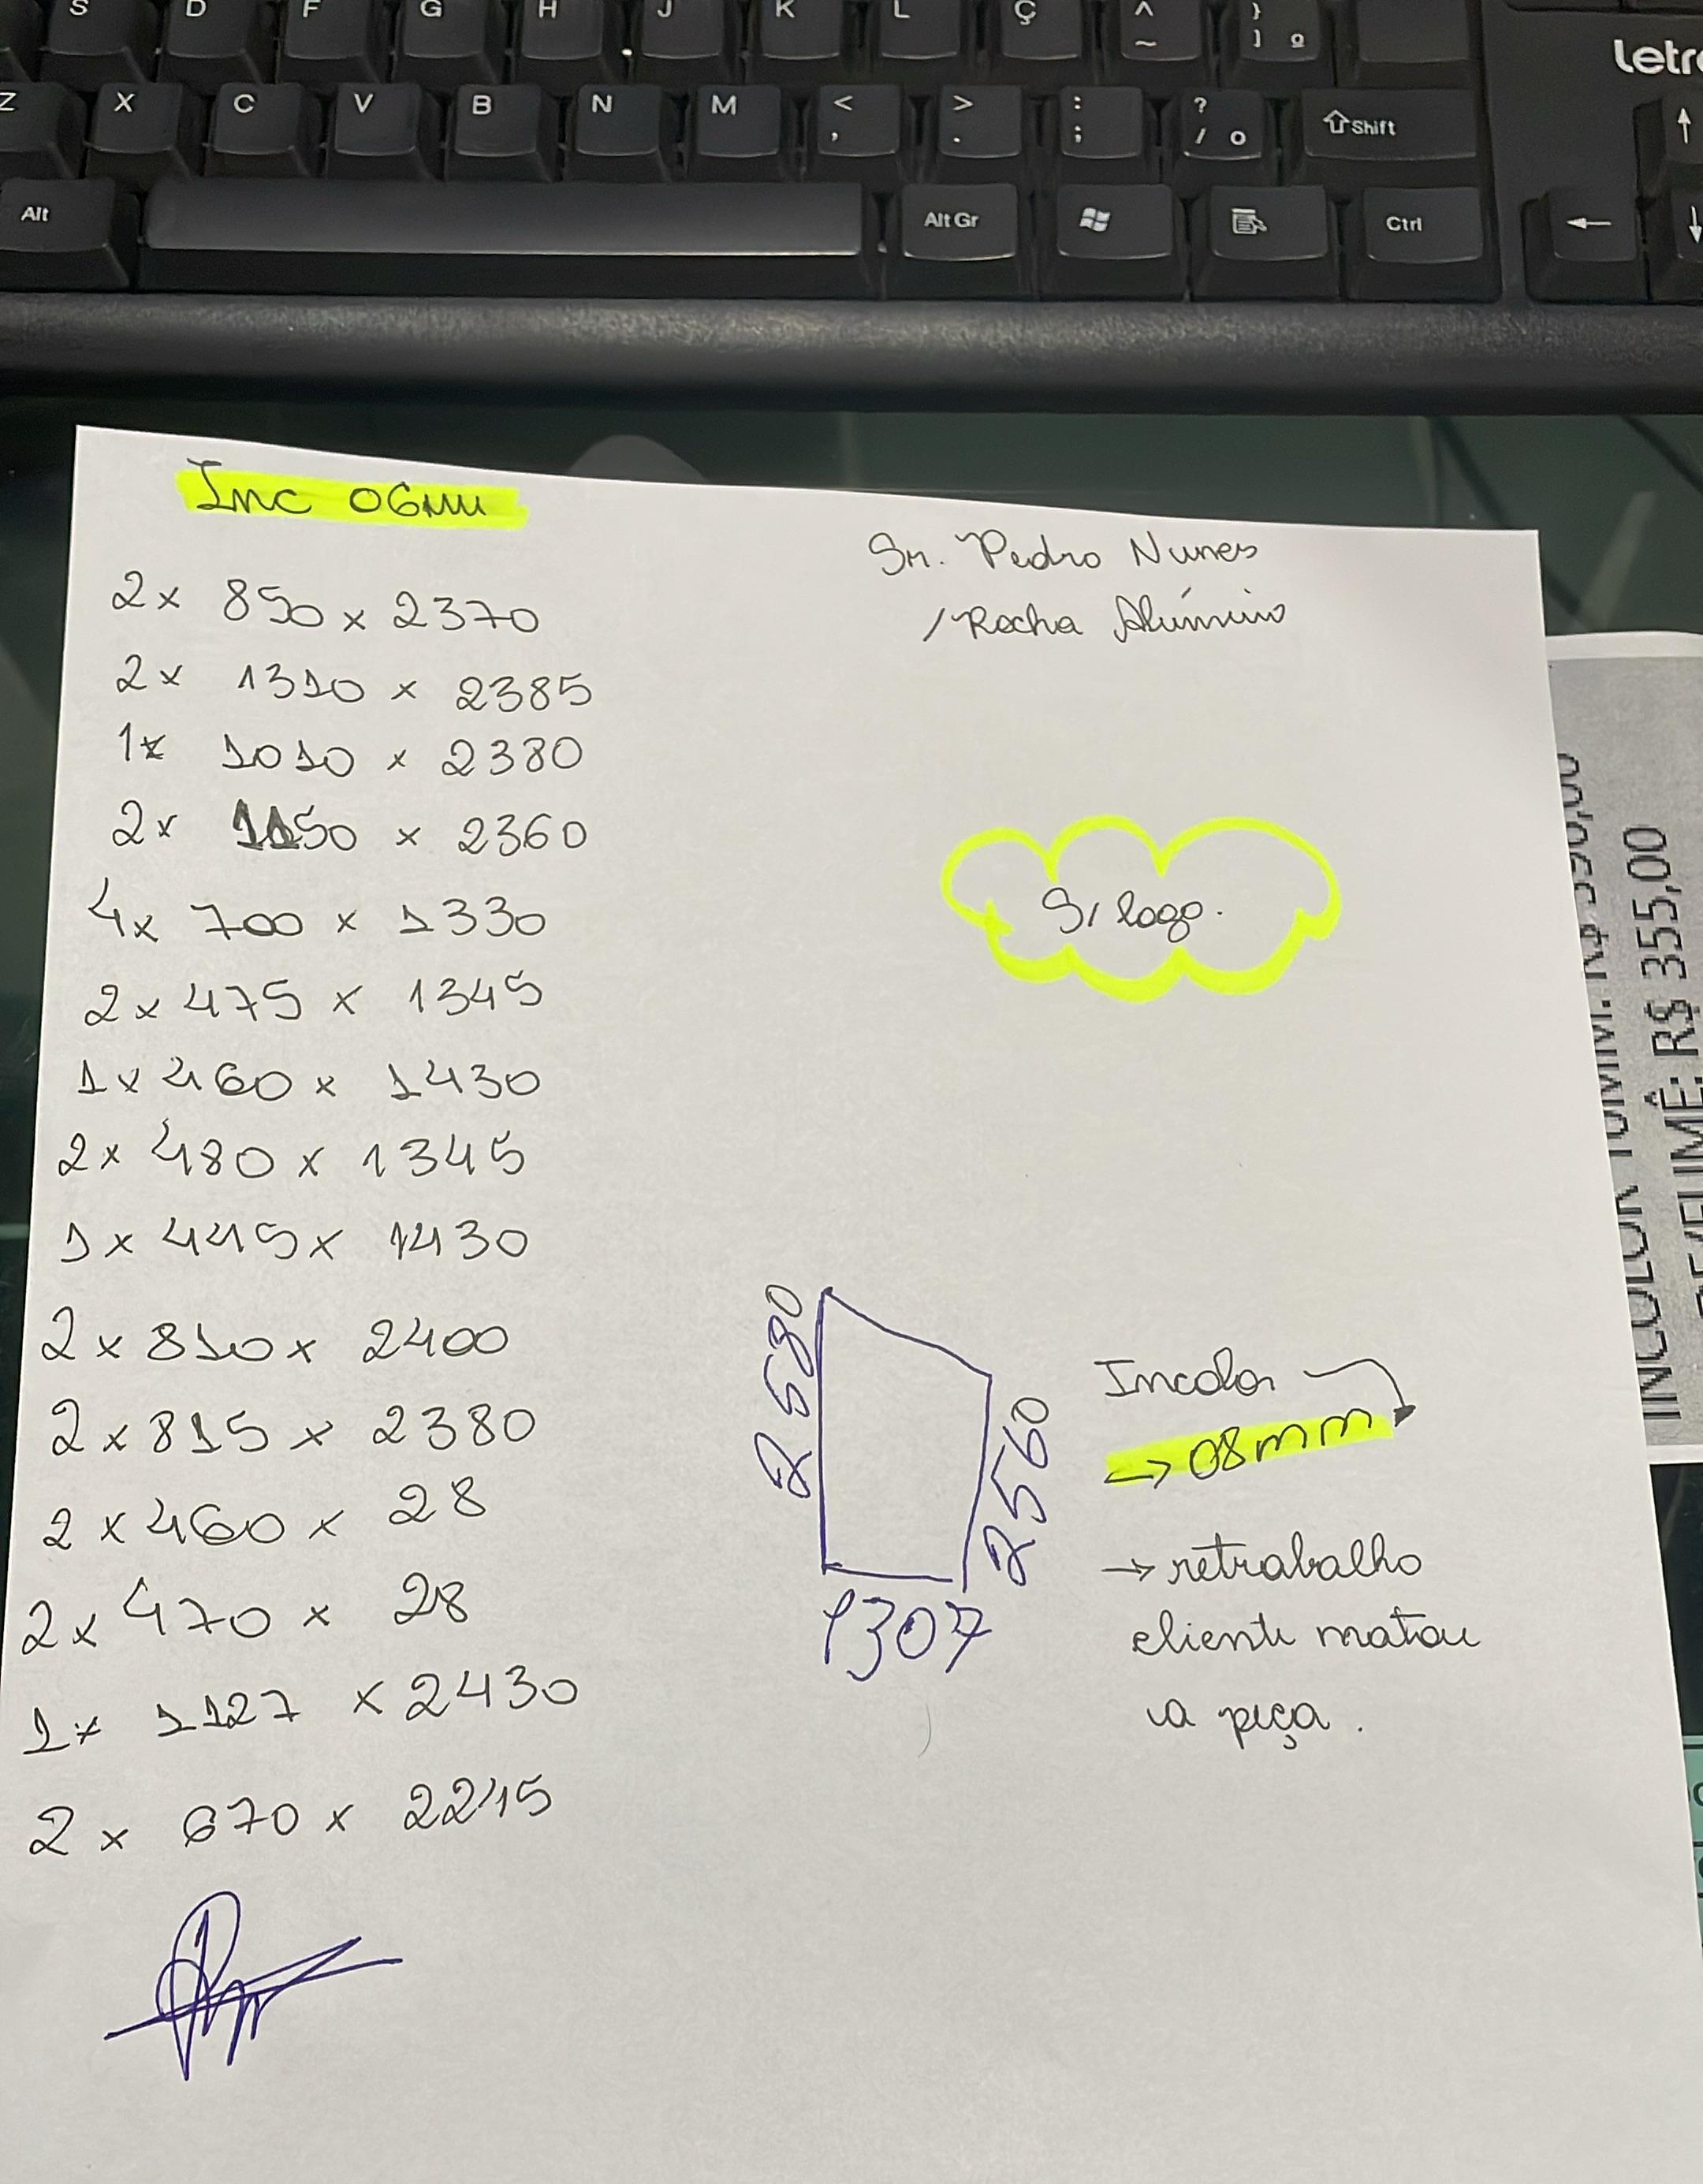 S D F G H J K L Ç ^ ~ } ] º
Letr
Z X C V B N M < , > . : ; ? / º Shift
Alt Alt Gr Ctrl
Inc 06mm
Sr. Pedro Nunes
/Rocha Alúminio
2x 850 x 2370
2x 1310 x 2385
1x 1010 x 2380
2x 1150 x 2360
4x 700 x 1330
2x 475 x 1345
1x 460 x 1430
2x 480 x 1345
1x 445x 1430
2x 810x 2400
2x815 x 2380
2x460x 28
2x 470 x 28
1x 1127 x 2430
2x 670 x 2245
S/ logo.
2580
2560
1307
Incolor
→ 08mm
→ retrabalho
cliente matou
a peça.
INCOLOR 10MM: R$ 
R$ 355,00